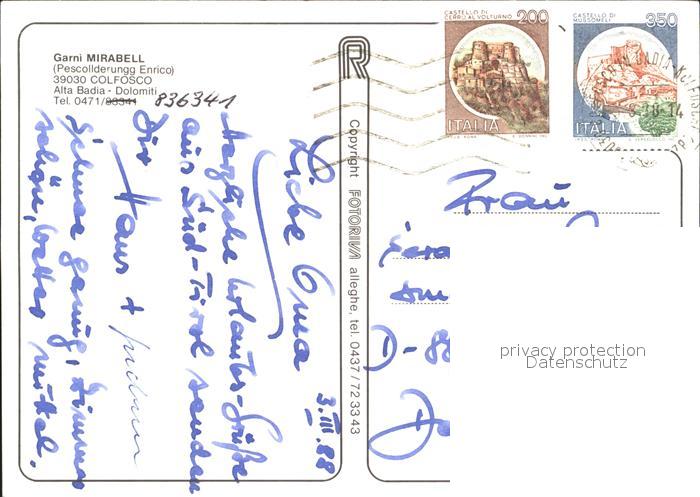 Garni MIRABELL
(Pescollderungg Enrico)
39030 COLFOSCO
Alta Badia - Dolomiti
Tel. 0471/83341 836341
3.III.88
Liebe Oma
Herzliche Urlaubs-Grüße
aus Süd-Tirol senden
Dir
Hans +
Schnee genug, Zimmer
schön, Wetter mittel.
R
Copyright FOTORIVA alleghe, tel. 0437/723343
CASTELLO DI
CERRO AL VOLTURNO 200
ITALIA
CASTELLO DI
MUSSOMELI 350
ITALIA
Frau
D-88
privacy protection
Datenschutz